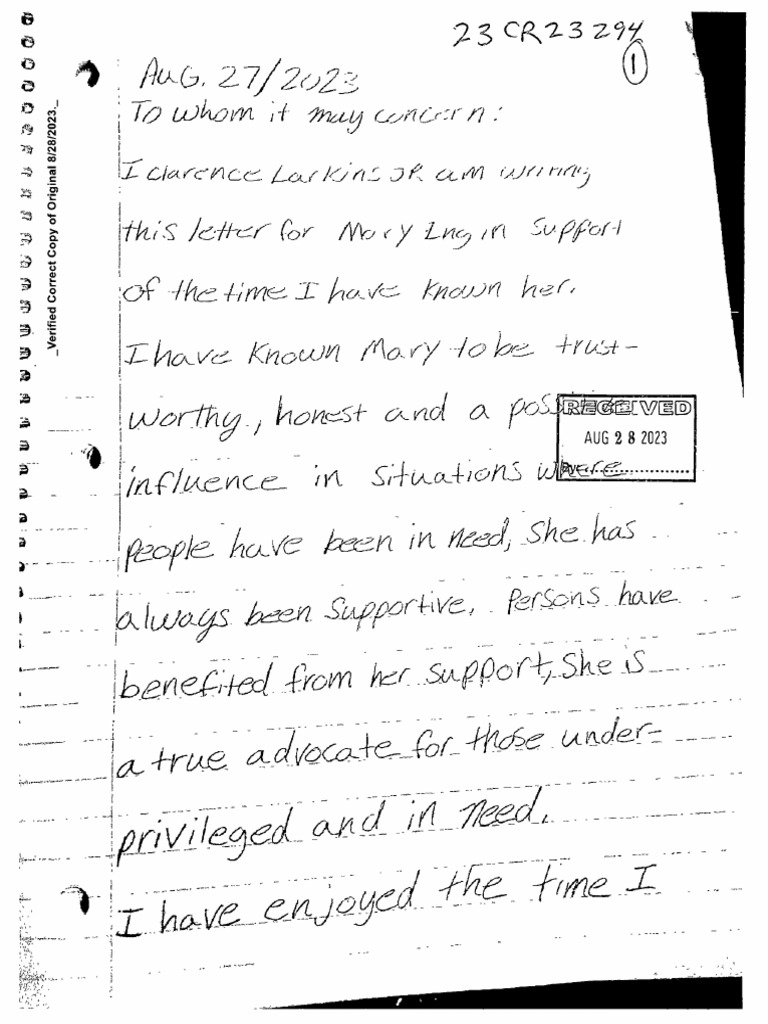 23CR23294
1
AUG. 27/2023
To whom it may concern:
I Clarence Larkins JR am writing
this letter for Mary Eng in support
of the time I have known her.
I have known Mary to be trust-
worthy, honest and a positive
RECEIVED
AUG 28 2023
influence in situations where
people have been in need, she has
always been supportive. Persons have
benefited from her support, She is
a true advocate for those under-
privileged and in need.
I have enjoyed the time I
_Verified Correct Copy of Original 8/28/2023._